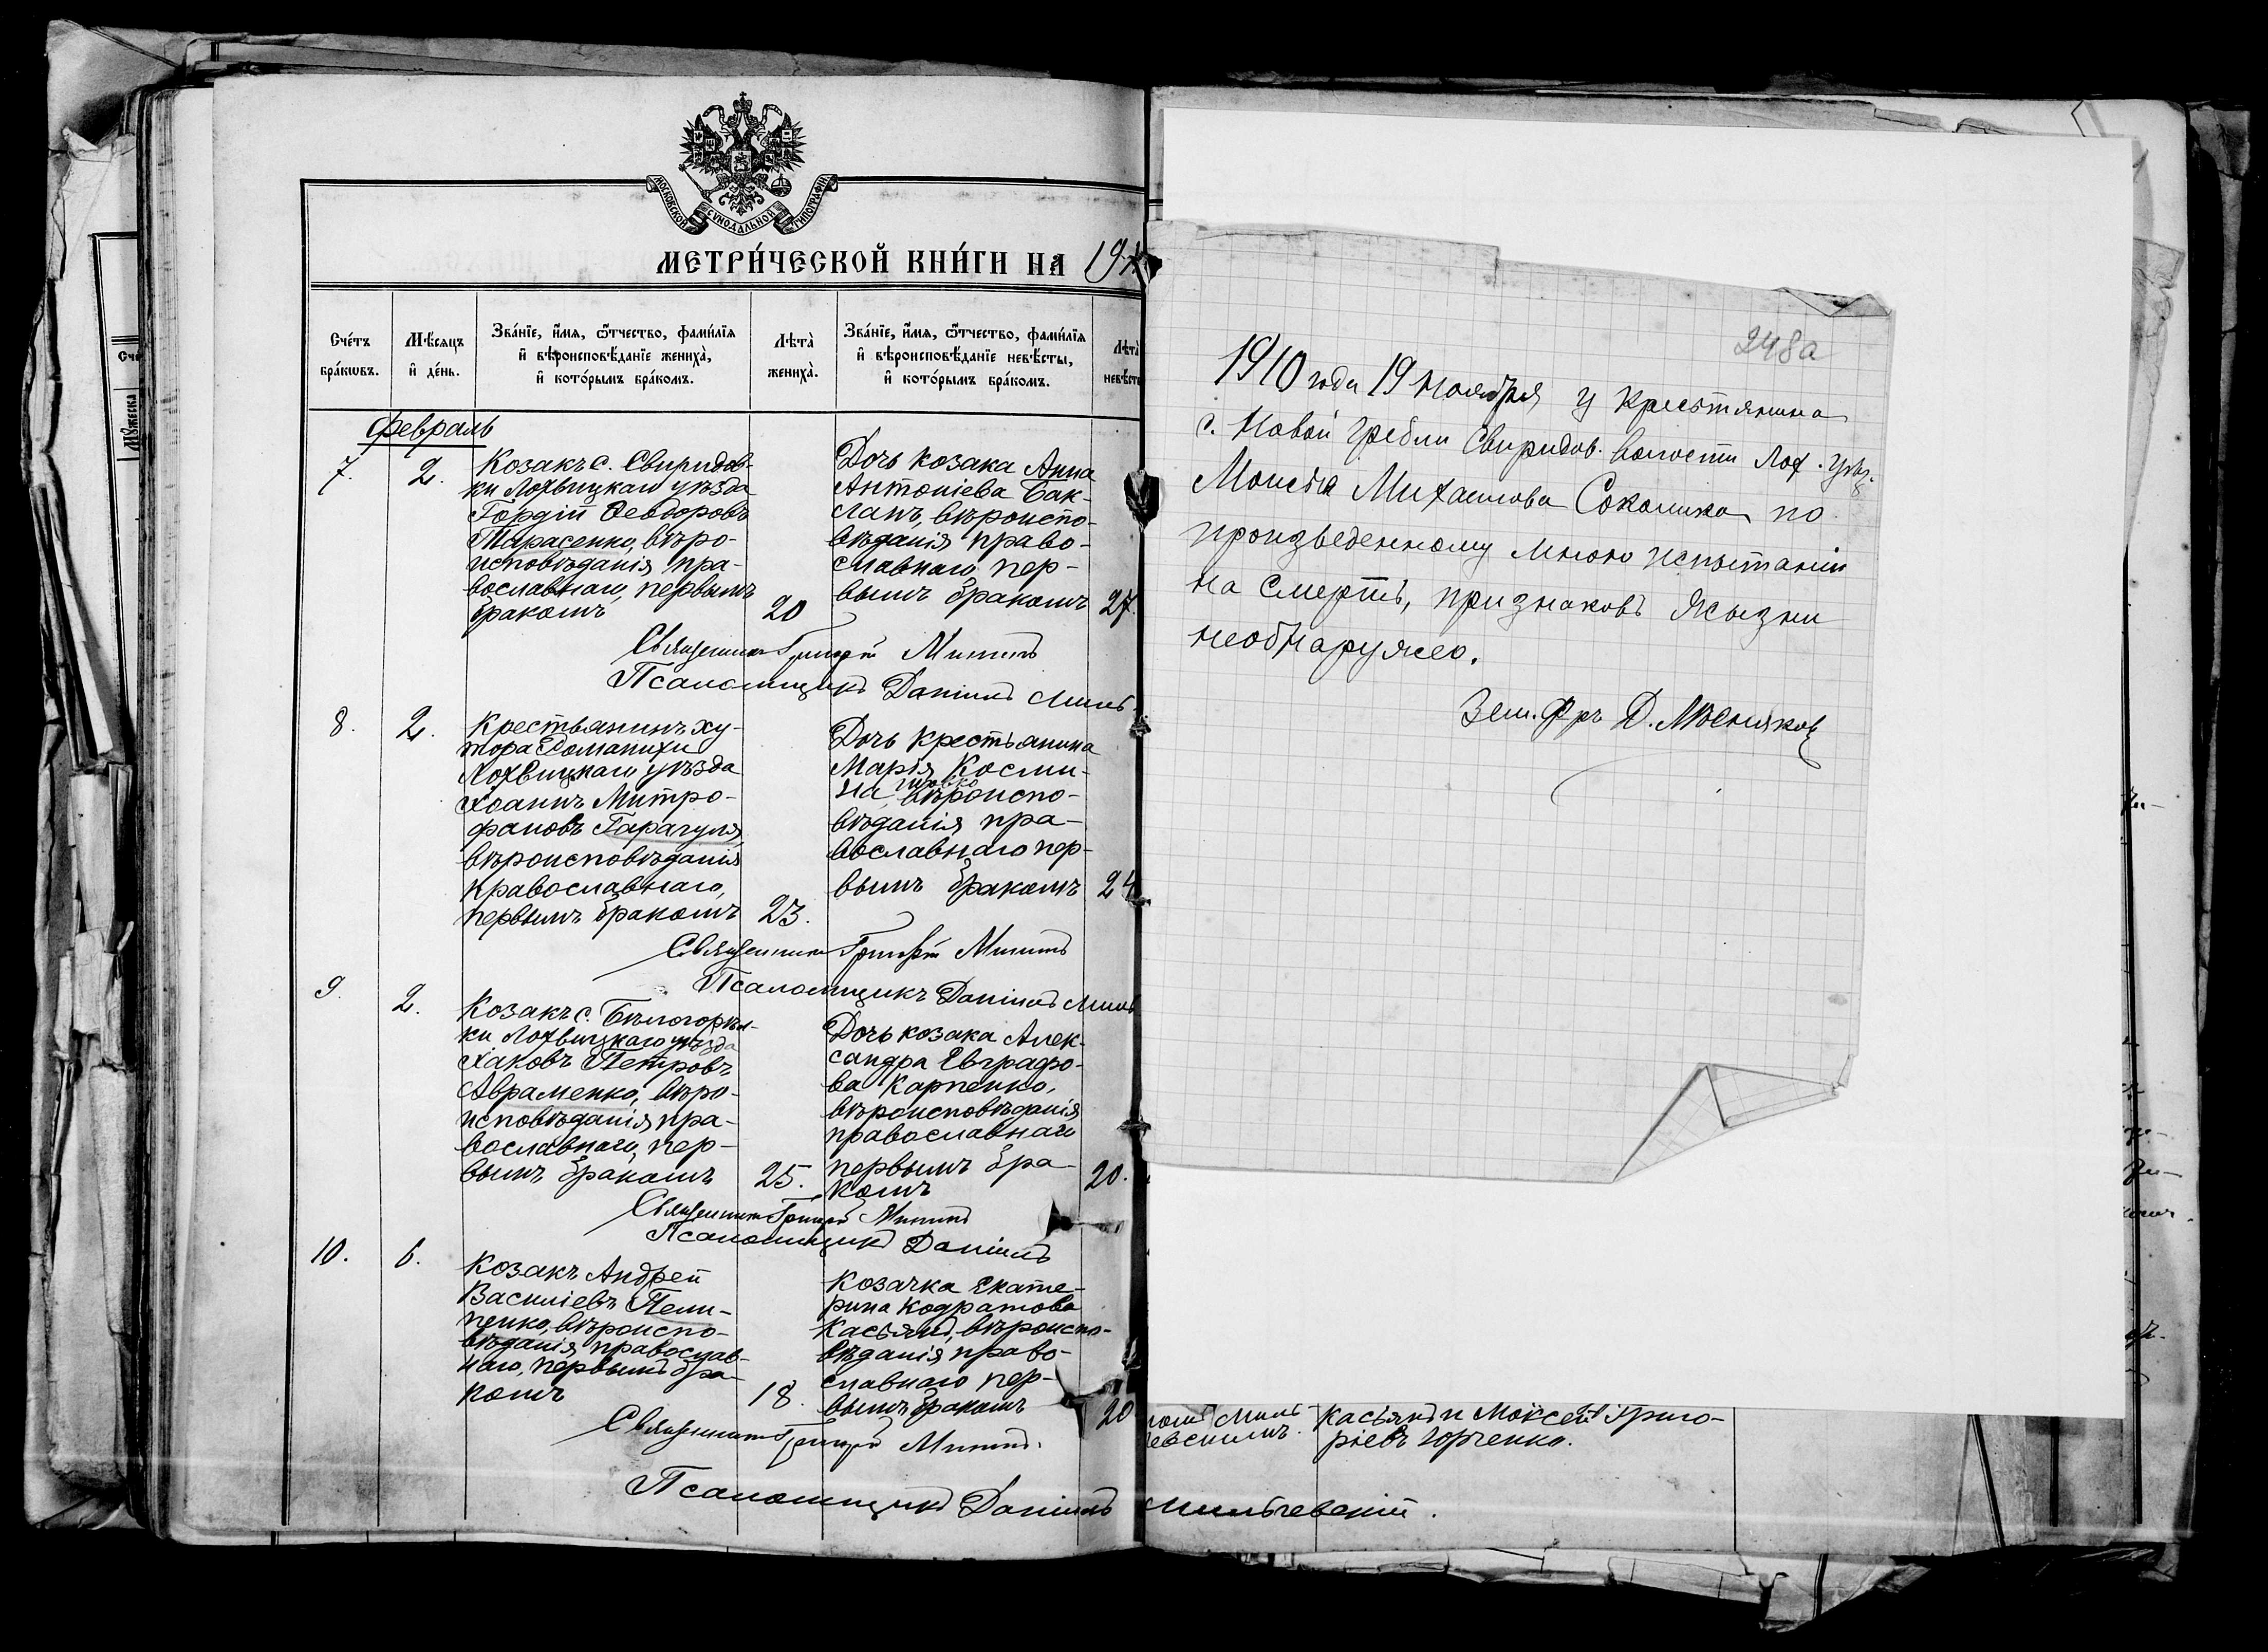 МОСКОВСКОЙ СѴНОДАЛЬНОЙ ТИПОГРАФІИ
МЕТРИ́ЧЕСКОЙ КНИ́ГИ НА 19
Сче́тъ бра́кѡвъ.
Мѣ́сяцъ и҆ де́нь.
Зва́нїе, и҆́мѧ, ѻ҆́тчество, фами́лїѧ
и҆ вѣроисповѣ́данїе жениха̀,
и҆ кото́рымъ бра́комъ.
Лѣта̀ жениха̀.
Зва́нїе, и҆́мѧ, ѻ҆́тчество, фами́лїѧ
и҆ вѣроисповѣ́данїе невѣ́сты,
и҆ кото́рымъ бра́комъ.
Лѣта̀
Февраль
7.
2.
Козакъ с. Свиридов-
ки Лохвицкаго уѣзда
Гордій Ѳеодоровъ
Тарасенко, вѣро-
исповѣданія пра-
вославнаго, первымъ
бракомъ
20
Дочь козака Анна
Антоніева Бак-
ланъ, вѣроиспо-
вѣданія право-
славнаго пер-
вымъ бракомъ
27.
Священникъ Григорій
Псаломщикъ Даніилъ Миль
8.
2.
Крестьянинъ ху-
тора Романихи
Лохвицкаго уѣзда
Іоаннъ Митро-
фановъ Гарагуля,
вѣроисповѣданія
православнаго,
первымъ бракомъ
23.
Дочь крестьянина
Марія Косми-
на вѣроиспо-
вѣданія пра-
вославнаго пер-
вымъ бракомъ
24
Священникъ Григорій
Псаломщикъ Даніилъ Миль
9.
2.
Козакъ с. Бѣлогорѣл-
ки Лохвицкаго уѣзда
Іаковъ Петровъ
Авраменко, вѣро-
исповѣданія пра-
вославнаго, пер-
вымъ бракомъ
25.
Дочь козака Алек-
сандра Евграфо-
ва Карпенко,
вѣроисповѣданія
православнаго
первымъ бра-
комъ
20.
Священникъ Григорій
Псаломщикъ Даніилъ
10.
6.
Козакъ Андрей
Василіевъ Пели-
пенко, вѣроиспо-
вѣданія православ-
наго, первымъ бра-
комъ
18.
Козачка Екате-
рина Кодратова
Касьянъ, вѣроиспо-
вѣданія право-
славнаго пер-
вымъ бракомъ
20
Священникъ Григорій
Псаломщикъ Даніилъ Мильчевскій.
248а
1910 года 19 ноября у крестянина
с. Новой гребли Свиридов. волости Лох. уѣз.
Моисѣя Михаилова Соколика по
произведенному мною испытанію
на смерть, признаковъ жызни
необнаружео.
Зем. Фръ Д. Мѣсняков
Касьянъ и Моѵсей Григо-
ріевъ Юрченко.